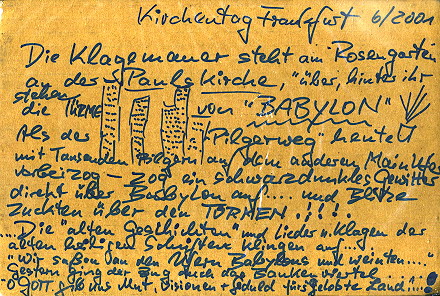 Kirchentag Frankfurt 6/2001
Die Klagemauer steht am Rosengarten
an der Paulskirche, "über, hinter ihr
stehen
die TÜRME von "BABYLON"
Als der "Pilgerweg" heute
mit Tausenden Pilgern an dem anderen Mainufer
vorbeizog - zog ein schwarzdunkles Gewitter
direkt über Babylon auf.... und Blitze
zuckten über den TÜRMEN !!!!
...Die "alten Geschichten" und Lieder u. Klagen der
alten heiligen Schriften klingen auf...
"Wir saßen an den Ufern Babylons und weinten..."
Gestern ging der Zug durch das Bankenviertel...
O GOTT gib uns Mut, Visionen + Geduld fürs gelobte Land...!